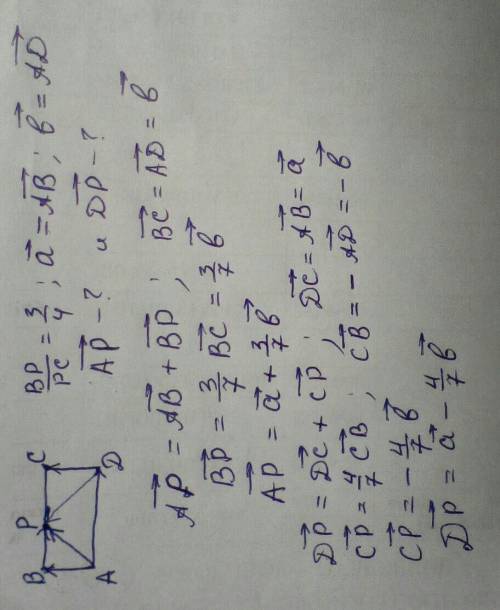 B P C
A D
BP/PC = 3/4 ; a⃗ = AB⃗ ; в⃗ = AD⃗
AP⃗ - ? и DP⃗ - ?
AP⃗ = AB⃗ + BP⃗ ; BC⃗ = AD⃗ = в⃗
BP⃗ = 3/7 BC⃗ = 3/7 в⃗
AP⃗ = a⃗ + 3/7 в⃗
DP⃗ = DC⃗ + CP⃗ ; DC⃗ = AB⃗ = a⃗
CP⃗ = 4/7 CB⃗ ; CB⃗ = - AD⃗ = - в⃗
CP⃗ = - 4/7 в⃗
DP⃗ = a⃗ - 4/7 в⃗